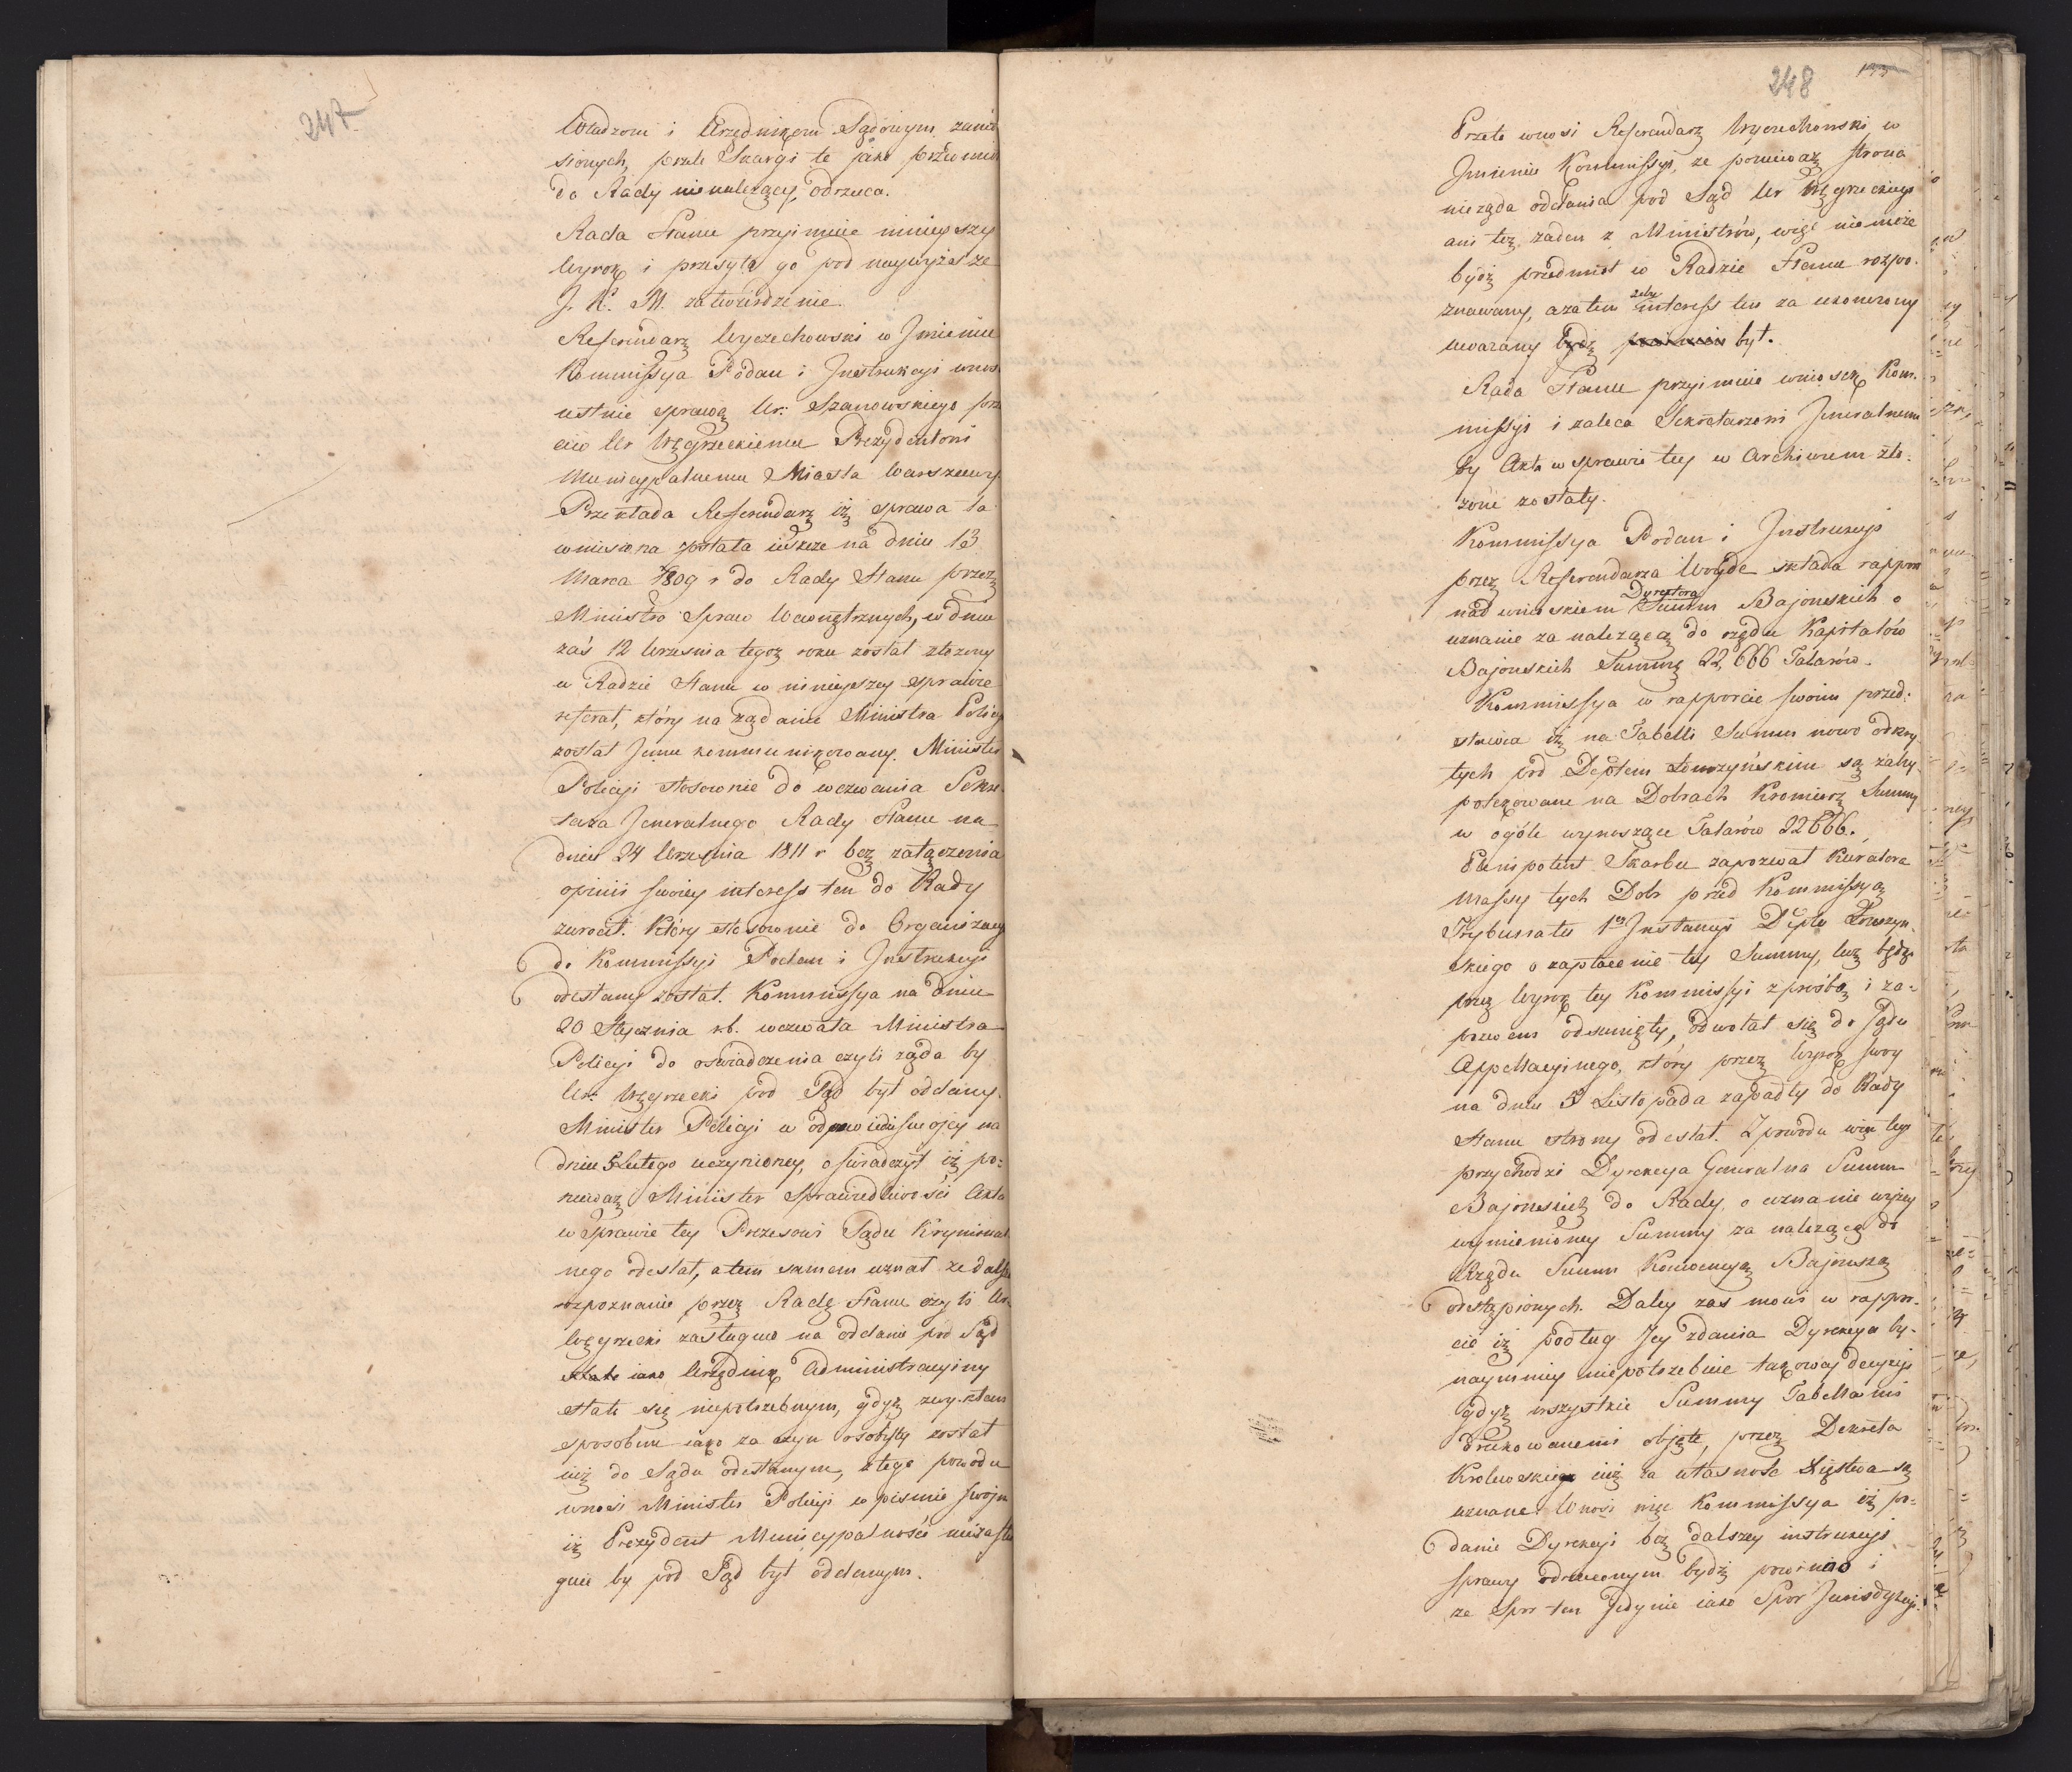 247
Władzom i Urzędnikom Sądowym zanie
sionych, przeto Skargi te jako
do Rady nienależącey, odrzuca.
Rada Stanu przyimuie ninieyszy
Wyrok i przesyła go pod naywyższe
J. K. M. zatwierdzenie.
Referendarz Wyczechowski w Jmieniu
Kommissya Podań i Jnstrukcyi wnosi
ustnie sprawą Ur: Szanowskiego prze
ciw Ur Węgrzeckiemu Prezydentowi
Municypalnemu Miasta Warszawy.
Przekłada Referendarz iż sprawa ta
wniesiona została ieszcze na dniu 13
Marca 1809 r do Rady Stanu przez
Ministra Spraw Wewnętrznych, w dniu
zaś 12 Września tegoż roku został złożony
w Radzie Stanu w ninieyszey sprawie
referat, który na żądanie Ministra Policyi
został Jemu kommunikowany. Minister
Policyi stosownie do wezwania Sekre
tarza Jeneralnego Rady Stanu na
dniu 24 Września 1811 r bez załączenia
opinii swoiey interess ten do Rady
zwrócił. Który stosownie do Organizacyi
do Kommissyi Podań i Jnstrukcyi
odesłany został. Kommissya na dniu
20 Stycznia rb. wezwała Ministra
Policyi do oświadczenia czyli żąda by
Ur: Węgrzecki pod Sąd był oddany.
Minister Policyi w odpowiedzi swojey na
dniu 5 Lutego uczynioney, oświadczył iż po=
nieważ Minister Sprawiedliwości Akta
w Sprawie tey Prezesowi Sądu Kryminal
nego odesłał, a tem samem uznał że dalsze
rozpoznanie przez Radę Stanu czyli Ur.
Węgrzecki zasługuie na oddanie pod Sąd
iako Urzędnik Administracyiny
stało się niepotrzebnym, gdyż zwykłem
sposobem iako za czyn osobisty został
iuż do Sądu odesłanym, z tego powodu
wnosi Minister Policyi w piśmie swojm
iż Prezydent Municypalności niezasłu
guie by pod Sąd był oddanym.
248
Przeto wnosi Referendarz Wyczechowski w
Jmieniu Kommissyi, że ponieważ strona
nieżąda oddania pod Sąd Ur Węgrzeckiego
ani też żaden z Ministrów, więc nie może
bydź przedmiot w Radzie Stanu rozpo=
znawany, azatem żeby interess ten za ukończony
uważany był.
Rada Stanu przyimuie wniosek Kom=
missyi i zaleca Sekretarzowi Jeneralnemu
by Akta w sprawie tey w Archiwum zło=
żone zostały.
Kommissya Podań i Jnstrukcyi
przez Referendarza Woyde składa rapport
nad wnioskiem Dyrektora Summ Bajońskich o
uznanie za należącą do rzędu Kapitałów
Bajońskich Summę 22,666 Talarów.
Kommissya w rapporcie swoim przed=
stawia iż na Tabelli Summ nowo odkry=
tych pod Deptem Łomżyńskim są zahy=
potekowane na Dobrach Kromierz Summy
w ogóle wynoszące Talarów 22666.
Plenipotent Skarbu zapozwał Kuratora
Massy tych Dóbr przed Kommissyą
Trybunału 1ey Jnstancyi Deptu Łomżyń=
skiego o zapłacenie tey Summy, lecz będąc
przez Wyrok tey Kommissyi z prośbą i za=
pozwem odsunięty, odwołał się do Sądu
Appellacyinego, który przez Wyrok swoy
na dniu 5 Listopada zapadły do Rady
Stanu strony odesłał. Z powodu więc tego
przychodzi Dyrekcya Generalna Summ
Bajońskich do Rady, o uznanie wyżey
wymienioney Summy za należącą do
Rzędu Summ Konwencyą Bajońską
odstąpionych. Daley zaś mówi w rappor=
cie iż podług Jey zdania Dyrekcya by=
naymniey niepotrzebuie takowey decyzyi
gdyż wszystkie Summy Tabellami
drukowanemi objęte, przez Dekreta
Królewskie iuż za własność Xięstwa są
uznane. Wnosi więc Kommissya iż po=
danie Dyrekcyi bez dalszey instrukcyi
sprawy odrzuconym bydź powinno i
że Spor ten jedynie iako Spor Jurisdykcyi